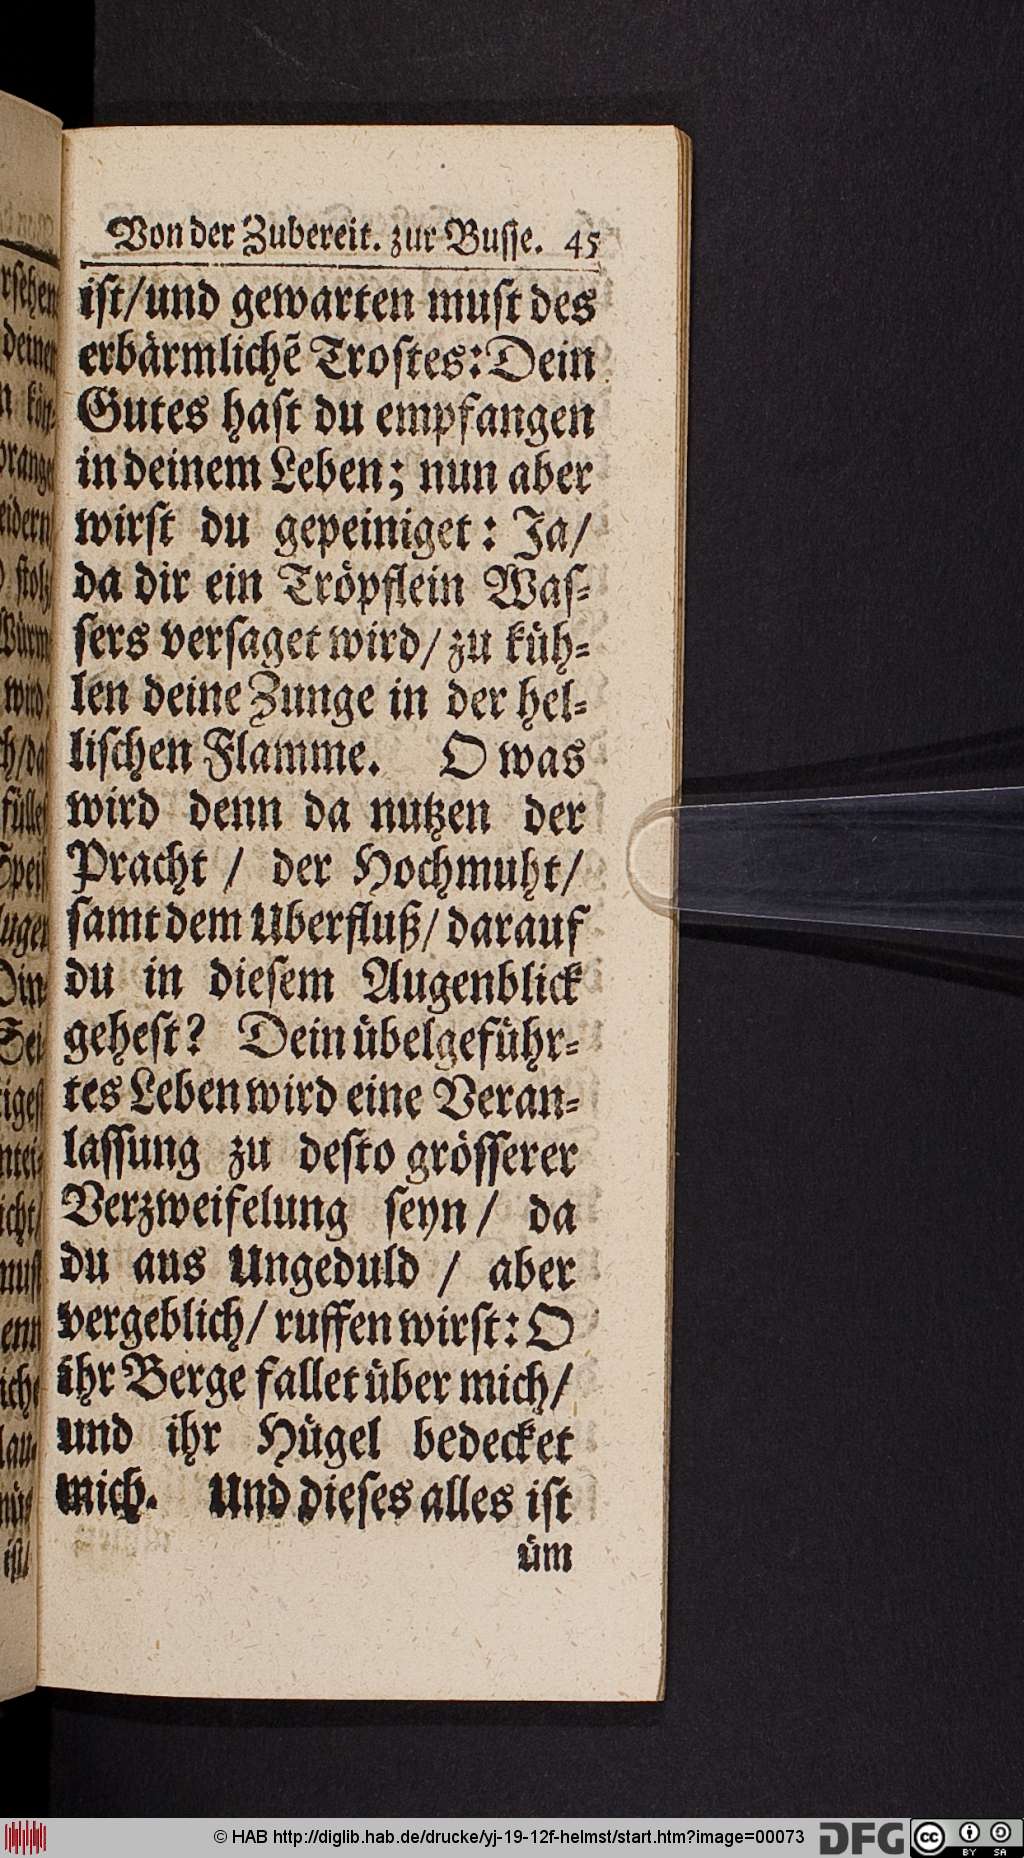 Von der Zubereit. zur Busse. 45
ist/und gewarten must des
erbärmlichẽ Trostes: Dein
Gutes hast du empfangen
in deinem Leben; nun aber
wirst du gepeiniget: Ja/
da dir ein Tröpflein Was-
sers versaget wird/ zu küh-
len deine Zunge in der hel-
lischen Flamme. O was
wird denn da nutzen der
Pracht / der Hochmuht/
samt dem Uberfluß/ darauf
du in diesem Augenblick
gehest? Dein übelgeführ-
tes Leben wird eine Veran-
lassung zu desto grösserer
Verzweifelung seyn / da
du aus Ungeduld / aber
vergeblich/ ruffen wirst: O
ihr Berge fallet über mich/
und ihr Hügel bedecket
mich. Und dieses alles ist
üm
© HAB http://diglib.hab.de/drucke/yj-19-12f-helmst/start.htm?image=00073
DFG
cc BY SA